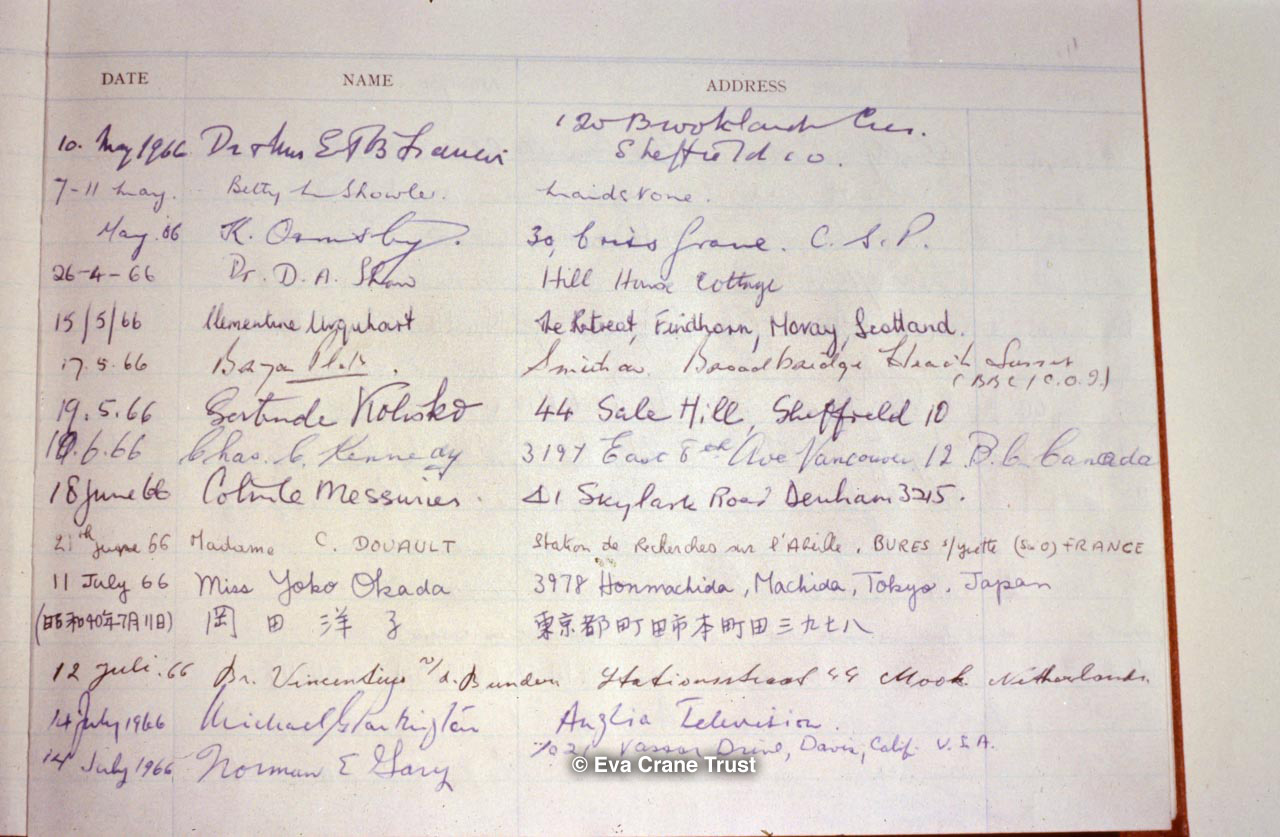 DATE NAME ADDRESS
120 Brooklands Cres.
10. May 1966 Dr & Mrs E T B Francis Sheffield 10.
7-11 May. Betty M Showler. Maidstone.
May. 66 K. Ormsby. 30, Grove. C. S. P.
26-4-66 Dr. D. A. Shaw Hill House Cottage
15/5/66 Clementine Urquhart The Retreat, Findhorn, Moray, Scotland.
17.5.66 Bryan Platt. Broadbridge Heath Sussex
(BBC/C.O.I.)
19.5.66 Gertrude Kolisko 44 Sale Hill, Sheffield 10
6.66 Chas. C. Kennedy 3197 East 8th Ave Vancouver 12 B.C. Canada
18 June 66 Messurier. 41 Skylark Road Denham 3215.
21th June 66 Madame C. DOUAULT Station de Recherches sur l'Abeille. BURES s/Yvette (S&O) FRANCE
11 July 66 Miss Yoko Okada 3978 Honmachida, Machida, Tokyo. Japan
(昭和40年7月11日) 岡田洋子 東京都町田市本町田三九七八
12 Juli. 66 Br. Vincentius v/d. Bunderi Stationsstraat 44 Mook Netherlands
14 July 1966 Michael Partington Anglia Television.
14 July 1966 Norman E Gary Vassar Drive, Davis, Calif. U.S.A.
© Eva Crane Trust